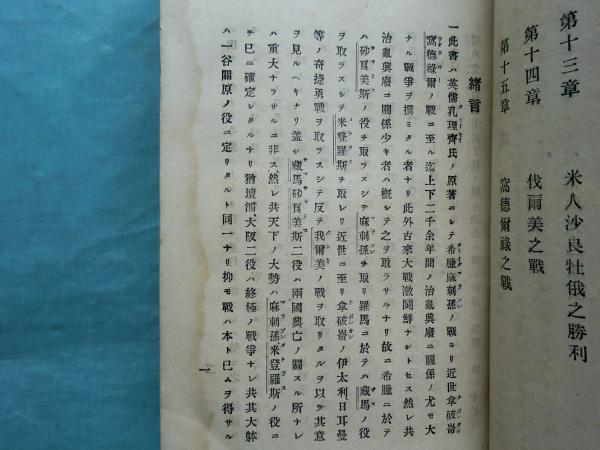 第十三章 米人沙良牡俄之勝利
第十四章 伐爾美之戰
第十五章 窩德爾祿之戰
緒言
一此書ハ英儒孔理齊氏ノ原著ニシテ希臘麻刺孫ノ戰ヨリ近世拿破崙
窩德祿爾ノ戰ニ至ル迄上下二千余年間ノ治亂興廢ニ關係ノ尤モ大
ナル戰爭ヲ撰ミタル者ナリ此外古來大戰激鬪鮮ナシトセス然レ共
治亂興廢ニ關係少キ者ハ概シテ之ヲ取ラサルナリ故ニ希臘ニ於テ
ハ砂瓦美斯ノ役ヲ取ラスシテ麻刺孫ヲ取リ羅馬ニ於テハ藏馬ノ役
ヲ取ラスシテ米登羅斯ヲ取レリ近世ニ至リ拿破崙ノ伊太利日耳曼
等ノ奇捷勇戰ヲ取ラスシテ反テ我爾美ノ戰ヲ取リタルヲ以テ其意
ヲ見ルヘキナリ蓋シ藏馬砂瓦美斯二役ハ兩國興亡ノ關スル所ナレ
ハ重大ナラサルニ非ス然レ共天下ノ大勢ハ麻刺孫米登羅斯ノ役ニ
テ已ニ確定シタルナリ猶壇浦大阪二役ハ終極ノ戰爭ナレ共其大躰
ハ一谷關原ノ役ニ定リタルト同一ナリ抑モ戰ハ本ト已ムヲ得サル
一